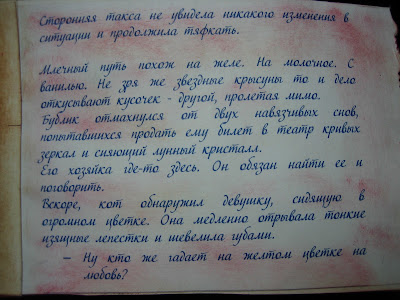 Сторонняя такса не увидела никакого изменения в
ситуации и продолжила тяфкать.
Млечный путь похож на желе. На молочное. С
ванилью. Не зря же звездные крысуны то и дело
откусывают кусочек - другой, пролетая мимо.
Бублик отмахнулся от двух навязчивых снов,
попытавшихся продать ему билет в театр кривых
зеркал и сияющий лунный кристалл.
Его хозяйка где-то здесь. Он обязан найти ее и
поговорить.
Вскоре, кот обнаружил девушку, сидящую в
огромном цветке. Она медленно отрывала тонкие
изящные лепестки и шевелила губами.
– Ну кто же гадает на желтом цветке на
любовь?